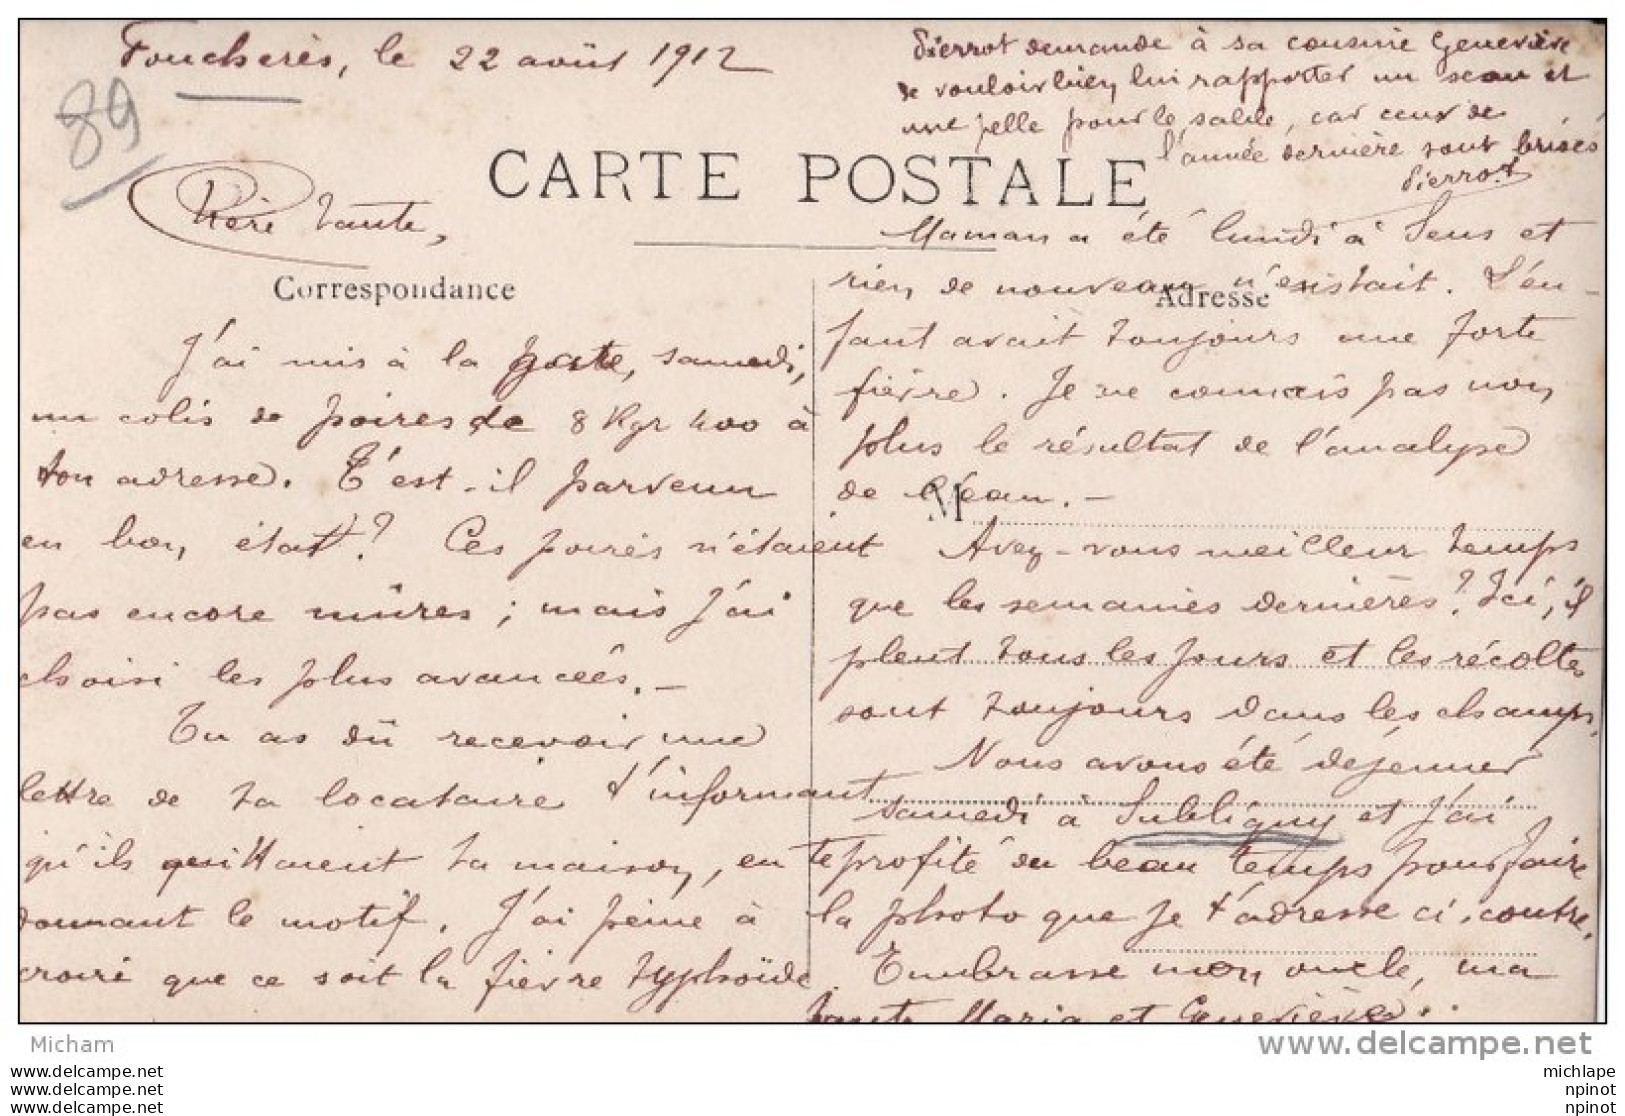 Foucherès, le 22 août 1912
89
Pierrot demande à sa cousine Geneviève
de vouloir bien lui rapporter un seau et
une pelle pour le sable, car ceux de
l'année dernière sont brisés
Pierrot
CARTE POSTALE
Correspondance
Adresse
M
Chère tante,
J'ai mis à la poste, samedi,
un colis de poires de 8 Kgr 400 à
ton adresse. T'est-il parvenu
en bon état? Ces poires n'étaient
pas encore mûres ; mais j'ai
choisi les plus avancées. –
Tu as dû recevoir une
lettre de ta locataire t'informant
qu'ils quittaient ta maison, en te
donnant le motif. J'ai peine à
croire que ce soit la fièvre typhoïde
Maman a été lundi à Sens et
rien de nouveau n'existait. L'en-
fant avait toujours une forte
fièvre. Je ne connais pas non
plus le résultat de l'analyse
de l'eau. –
Avez-vous meilleur temps
que les semaines dernières? Ici, il
pleut tous les jours et les récoltes
sont toujours dans les champs.
Nous avons été déjeuner
samedi à Subligny et j'ai
profité du beau temps pour faire
la photo que je t'adresse ci-contre.
Embrasse mon oncle, ma
tante Maria et Geneviève..
Micham
www.delcampe.net
michlape
npinot
npinot
www.delcampe.net
www.delcampe.net
www.delcampe.net